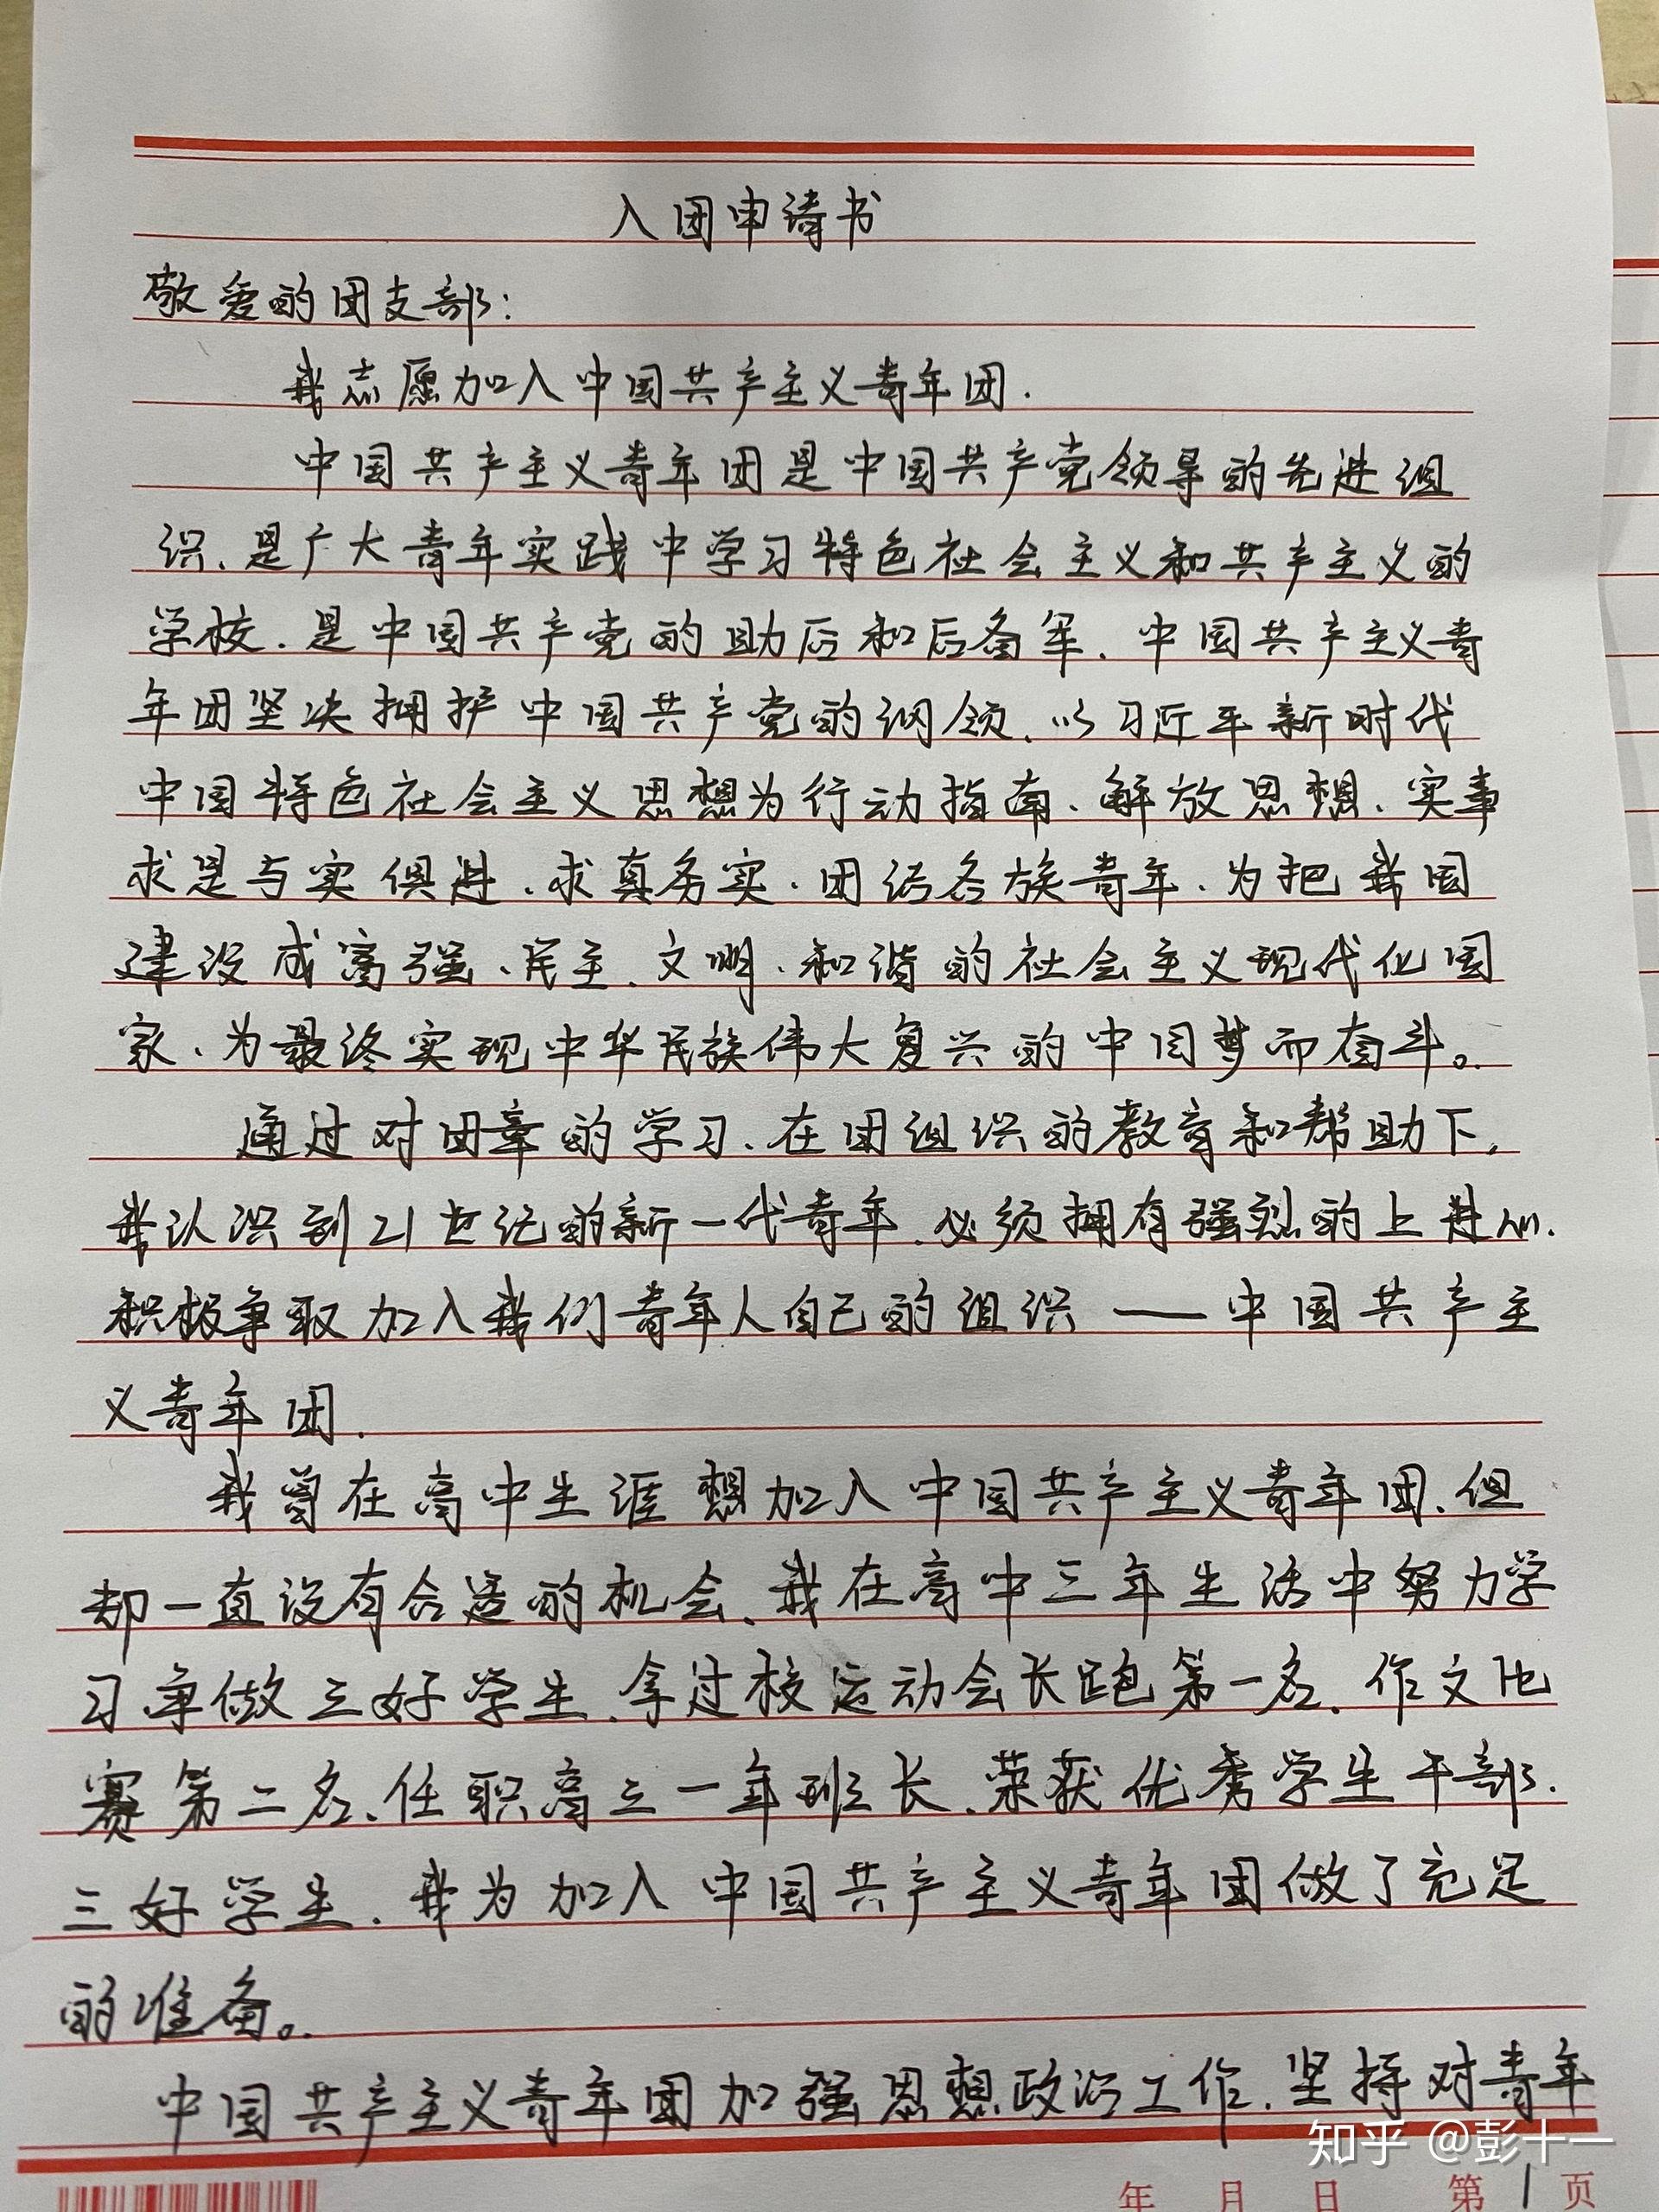 入团申请书
敬爱的团支部：
我志愿加入中国共产主义青年团.
中国共产主义青年团是中国共产党领导的先进组
织、是广大青年实践中学习特色社会主义和共产主义的
学校、是中国共产党的助后和后备军、中国共产主义青
年团坚决拥护中国共产党的纲领、以习近平新时代
中国特色社会主义思想为行动指南、解放思想、实事
求是与实俱进、求真务实、团结各族青年、为把我国
建设成富强、民主、文明、和谐的社会主义现代化国
家、为最终实现中华民族伟大复兴的中国梦而奋斗。
通过对团章的学习、在团组织的教育和帮助下，
我认识到21世纪的新一代青年、必须拥有强烈的上进心.
积极争取加入我们青年人自己的组织——中国共产主
义青年团.
我曾在高中生涯想加入中国共产主义青年团、但
却一直没有合适的机会、我在高中三年生活中努力学
习争做三好学生、拿过校运动会长跑第一名、作文比
赛第二名、任职高三一年班长、荣获优秀学生干部.
三好学生、我为加入中国共产主义青年团做了充足
的准备。.
中国共产主义青年团加强思想政治工作、坚持对青年
知乎 @彭十一
年 月 日 第1页